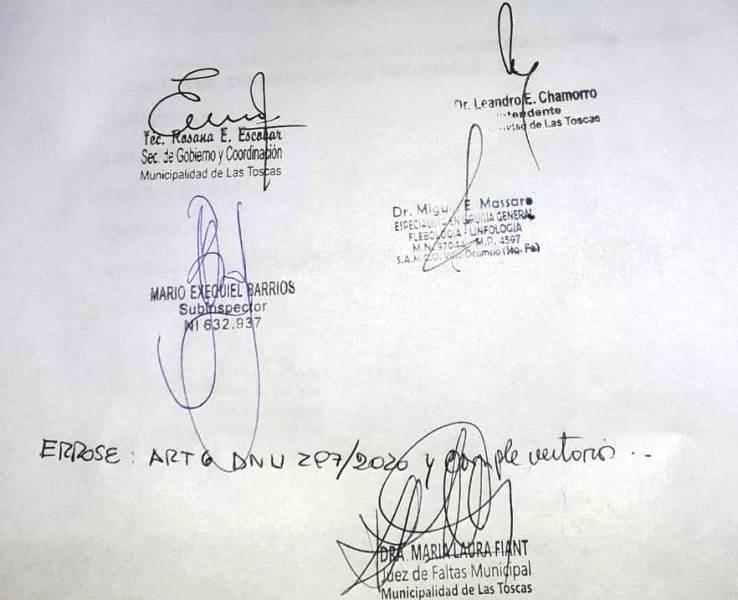 Tec. Rosana E. Escobar
Sec. de Gobierno y Coordinación
Municipalidad de Las Toscas
Dr. Leandro E. Chamorro
de Las Toscas
Dr. E. Massaro
EN CIRUGIA GENERAL
FLEBOLOGIA - LINFOLOGIA
M.P. 4597
Ocampo (Sta. Fe)
MARIO EXEQUIEL BARRIOS
Subinspector
NI 632.937
ART 6 DNU 297/2020 y
DRA. MARIA LAURA FIANT
Juez de Faltas Municipal
Municipalidad de Las Toscas